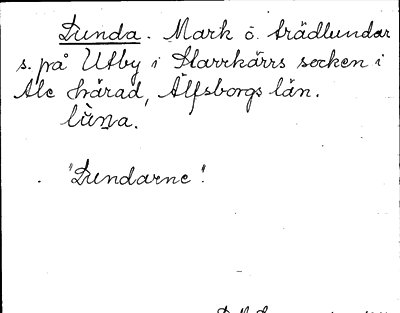 Lunda. Mark o. trädlundar
s. på Utby i Starrkärrs socken i
Ale härad, Älfsborgs län.
lùna.
"Lundarne".